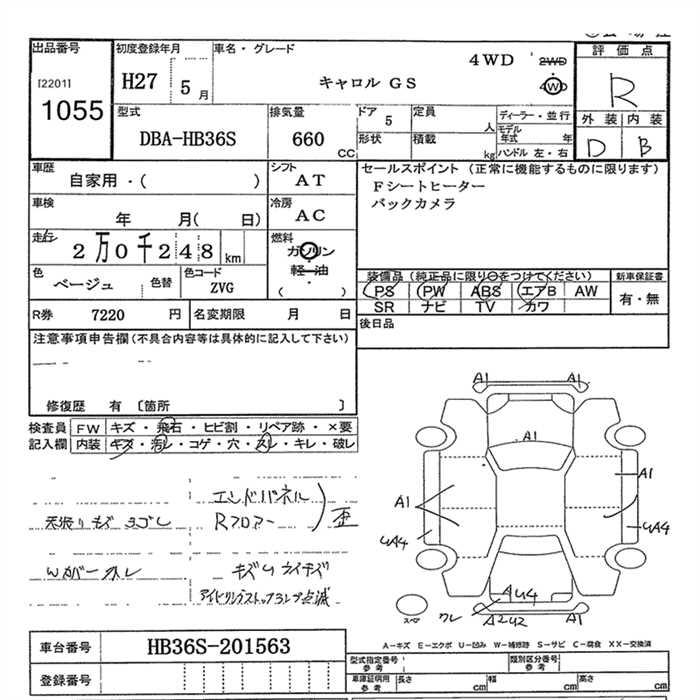 出品番号
[2201]
1055
初度登録年月
H27 5月
車名・グレード
キャロル GS
4WD
2WD
4WD
評価点
R
外装 内装
D B
型式
DBA-HB36S
排気量
660
CC
ドア
5
定員
人
形状
積載
kg
ディーラー・並行
モデル年式 年
ハンドル 左・右
車歴
自家用・( )
シフト
AT
車検
年 月( 日)
冷房
AC
走行
2万0千248km
燃料
ガソリン
軽油
・
( )
色
ベージュ
色替
色コード
ZVG
R券 7220 円
名変期限 月 日
セールスポイント (正常に機能するものに限ります)
Fシートヒーター
バックカメラ
装備品 (純正品に限り○をつけてください)
PS PW ABS エアB AW
SR ナビ TV カワ
新車保証書
有・無
後日品
注意事項申告欄(不具合内容等は具体的に記入して下さい)
修復歴 有 〔箇所 〕
検査員 FW キズ・飛石・ヒビ割・リペア跡・×要
記入欄 内装 キズ・汚レ・コゲ・穴・スレ・キレ・破レ
エンドパネル
Rフロアー
歪
天張りキズ ヨゴレ
Wカバークレ
キズ U ライキズ
アイドリングストップランプ点滅
A1 A1
A1
A1
A1
UA4
UA4
AU4
クレ A2U2
A1
スペア
A－キズ E－エクボ U－凹み W－補修跡 S－サビ C－腐食 XX－交換済
車台番号 HB36S-201563
登録番号
型式指定番号
参考
類別区分番号
参考
車庫証明用
参考
長さ cm 幅 cm 高さ cm